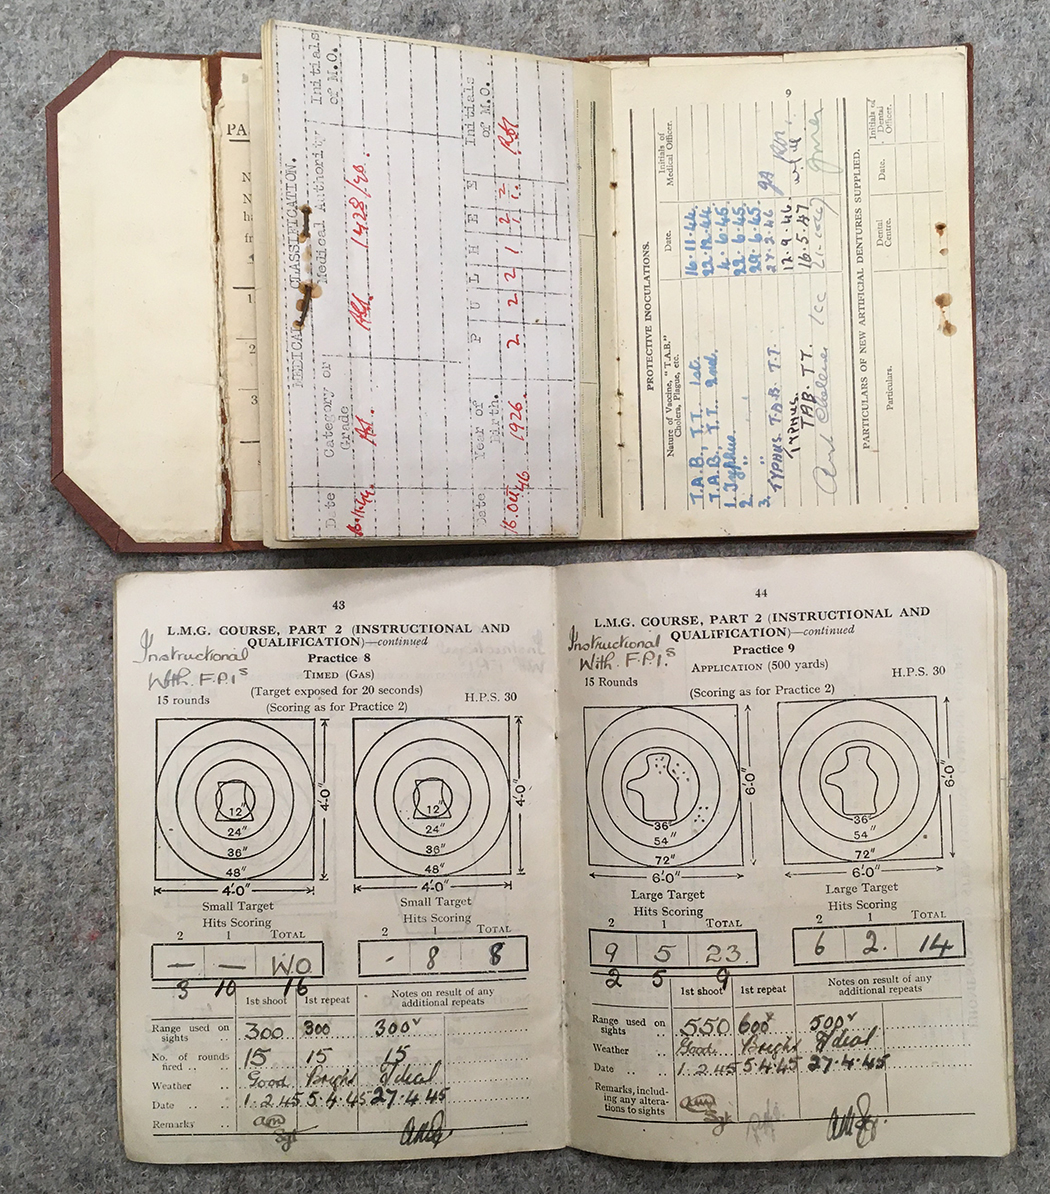 PA
N
N
1
2
3
MEDICAL CLASSIFICATION.
Date Category or Grade Medical Authority Initials of M.O.
A1.
Date Year of Birth. P U L H E E Initials of M.O.
1926. 2 2 2 1 2 2
PROTECTIVE INOCULATIONS.
Nature of Vaccine, "T.A.B."
Cholera, Plague, etc.
Date.
Initials of
Medical Officer.
T.A.B., T.T. 1st. 16.11.44.
T.A.B., T.T. 2nd. 22.12.44.
1. Typhus. 4.6.45
2. " 22.6.45.
3. " 29.6.45.
TYPHUS. T.A.B. T.T. 27.2.46
TYPHUS. 12.9.46
TAB. T.T. 16.5.47
Cholera 1cc
PARTICULARS OF NEW ARTIFICIAL DENTURES SUPPLIED.
Particulars.
Dental
Centre.
Date.
Initials of
Dental
Officer.
43
L.M.G. COURSE, PART 2 (INSTRUCTIONAL AND
QUALIFICATION)—continued
Instructional
With F.P.I's
Practice 8
TIMED (GAS)
(Target exposed for 20 seconds)
(Scoring as for Practice 2)
15 rounds
H.P.S. 30
12"
24"
36"
48"
4'·0"
4'·0"
12"
24"
36"
48"
4'·0"
4'·0"
Small Target
Small Target
Hits Scoring
Hits Scoring
2 1 TOTAL
2 1 TOTAL
— — W.O.
- 8 8
3 10 16
1st shoot 1st repeat Notes on result of any
additional repeats
Range used on
sights .. 300 300 300
No. of rounds
fired .. .. 15 15 15
Weather .. Good Bright Ideal
Date .. .. 1.2.45 5.4.45 27.4.45
Remarks ..
Sgt
44
L.M.G. COURSE, PART 2 (INSTRUCTIONAL AND
QUALIFICATION)—continued
Instructional
With F.P.I.s
Practice 9
APPLICATION (500 yards)
15 Rounds
H.P.S. 30
(Scoring as for Practice 2)
36"
54"
72"
6'·0"
6'·0"
36"
54"
72"
6'·0"
6'·0"
Large Target
Large Target
Hits Scoring
Hits Scoring
2 1 TOTAL
2 1 TOTAL
9 5 23
6 2. 14
2 5 9
1st shoot 1st repeat Notes on result of any
additional repeats
Range used on
sights .. 550 600 500
Weather .. Good Bright Ideal
Date .. .. 1.2.45 5.4.45 27.4.45
Remarks, includ-
ing any altera-
tions to sights
Sgt